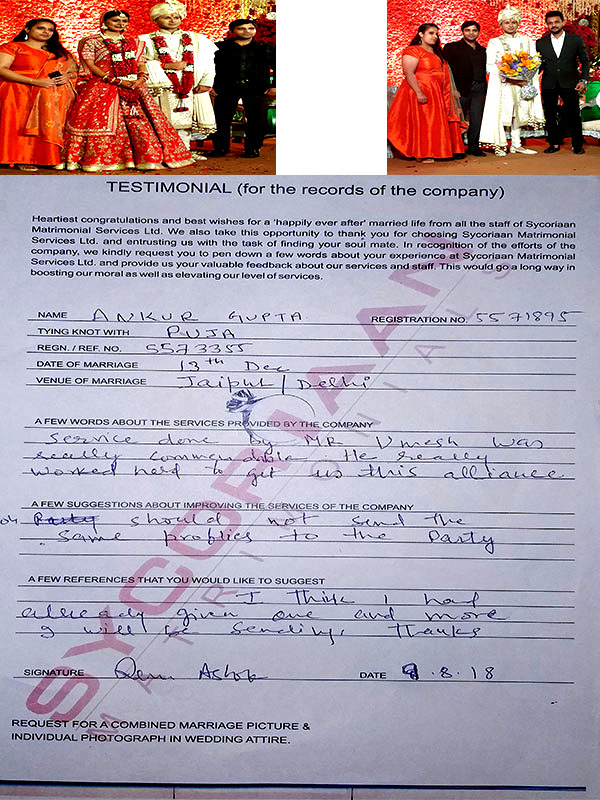 TESTIMONIAL (for the records of the company)
Heartiest congratulations and best wishes for a 'happily ever after' married life from all the staff of Sycoriaan
Matrimonial Services Ltd. We also take this opportunity to thank you for choosing Sycoriaan Matrimonial
Services Ltd. and entrusting us with the task of finding your soul mate. In recognition of the efforts of the
company, we kindly request you to pen down a few words about your experience at Sycoriaan Matrimonial
Services Ltd. and provide us your valuable feedback about our services and staff. This would go a long way in
boosting our moral as well as elevating our level of services.
NAME ANKUR GUPTA REGISTRATION NO. 5571895
TYING KNOT WITH PUJA
REGN. / REF. NO. 5573355
DATE OF MARRIAGE 13th Dec
VENUE OF MARRIAGE Jaipur / Delhi
A FEW WORDS ABOUT THE SERVICES PROVIDED BY THE COMPANY
Service done by MR Umesh was
really commendible. He really
worked hard to get us this alliance
A FEW SUGGESTIONS ABOUT IMPROVING THE SERVICES OF THE COMPANY
Party should not send the
same profiles to the Party
A FEW REFERENCES THAT YOU WOULD LIKE TO SUGGEST
I think I had
already given one and more
I will be sending. Thanks
SIGNATURE Renu Ashok DATE 9.8.18
REQUEST FOR A COMBINED MARRIAGE PICTURE &
INDIVIDUAL PHOTOGRAPH IN WEDDING ATTIRE.
SYCORIAAN
MATRIMONIALS